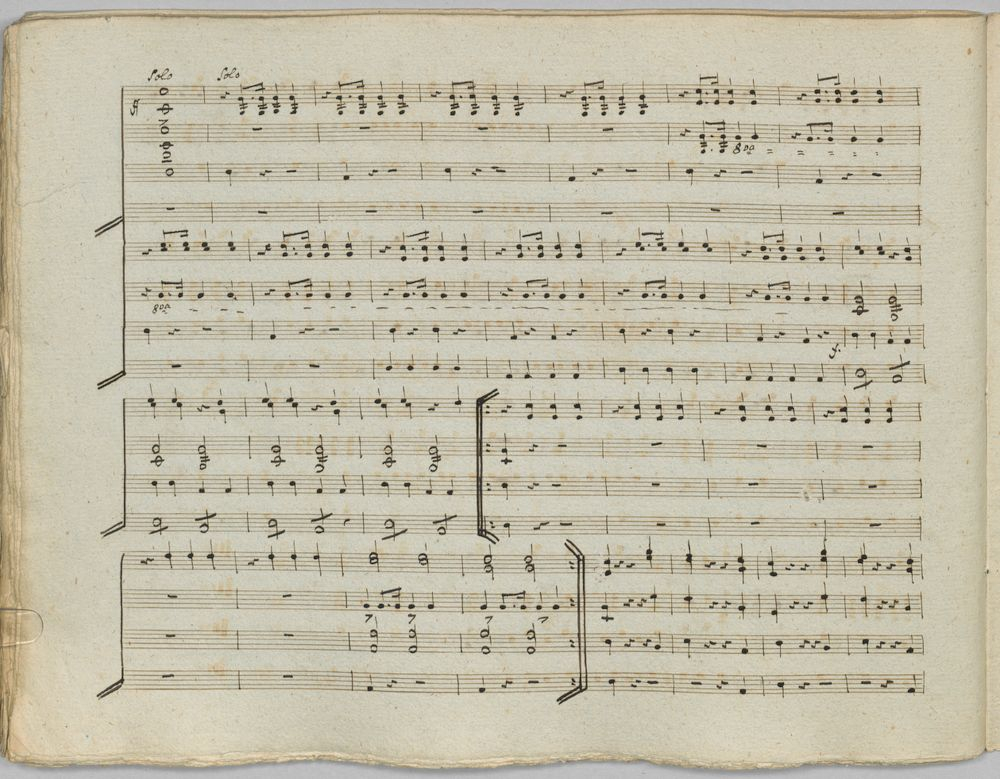 Solo Solo
8va
8va
f.